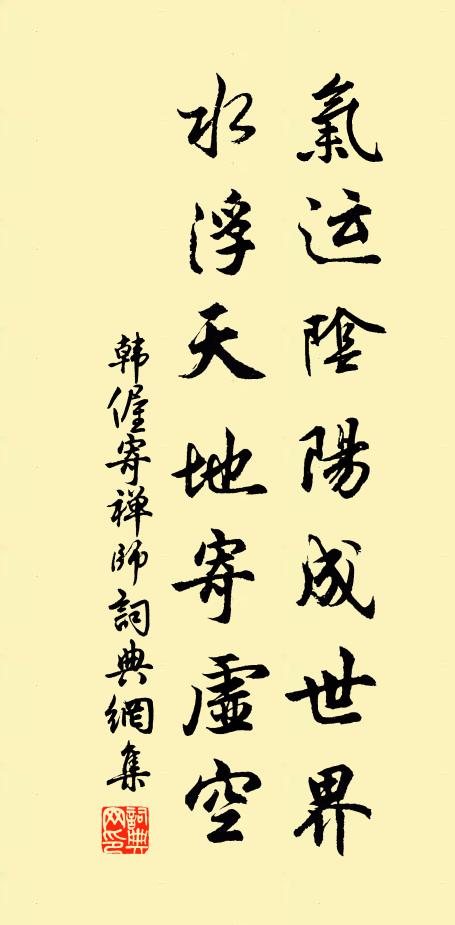 氣运陰陽成世界
水浮天地寄虛空
韩偓寄禅师詞典網集
詞典网印